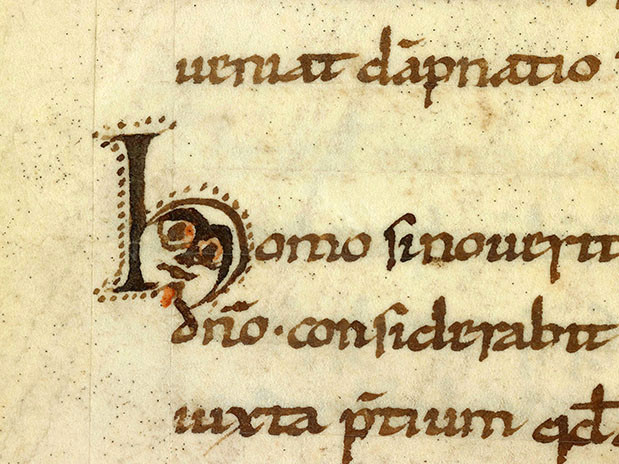 ueniat dāpnatio
homo si nouerit
dn̄o · considerabit
iuxta p̄tium qd̄